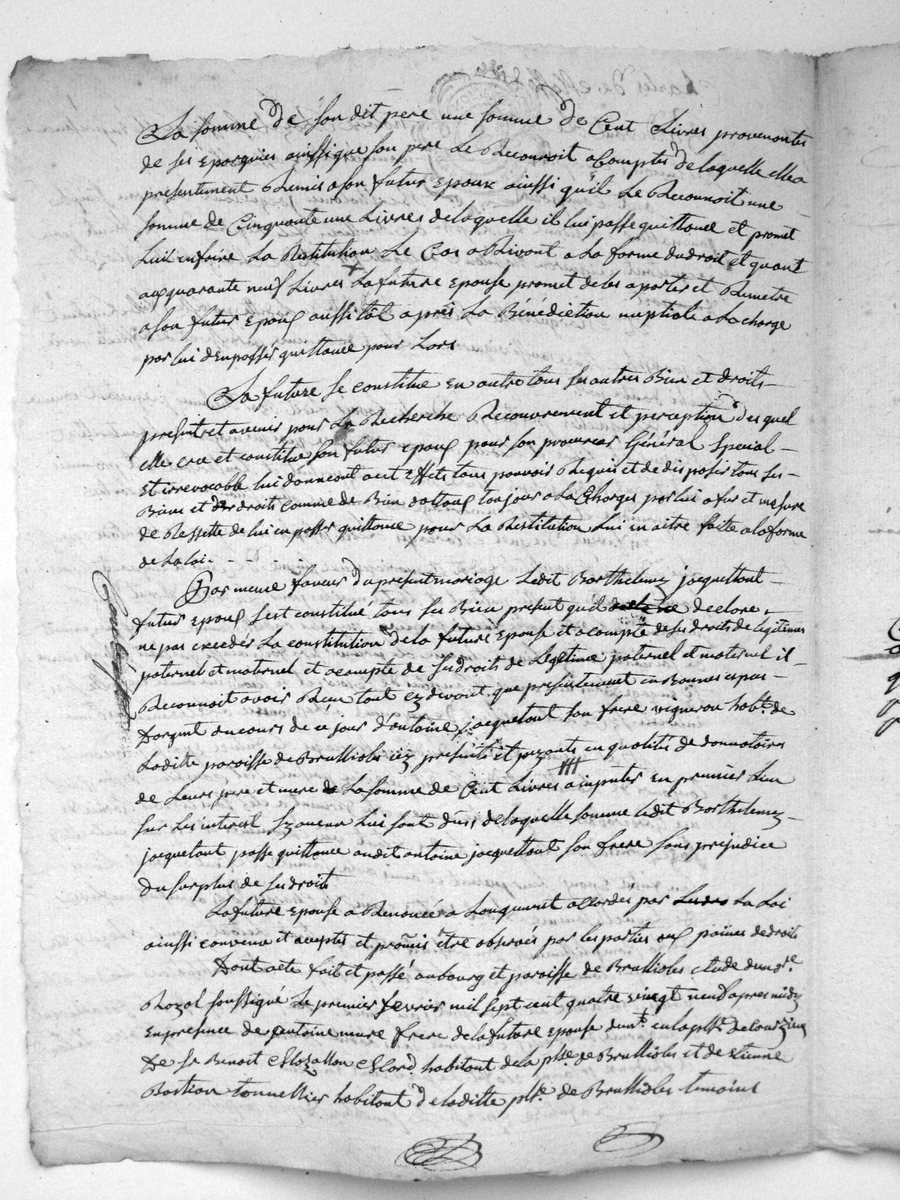 La somme de son dit pere une somme de Cent Livres provenantes
de ses eparques ainssique son pere Le Reconnoit a Comptes de laquelle elle a
presentement Remis a son futur epoux ainssi qu'il Le Reconnoit une
somme de Cinquante une Livres de laquelle il lui passe quittance et promet
Lui en faire La Restitution Le Cas arrivant a La forme du droit et quant
aux quarante neuf Livres La future epouse promet de les aporter et Remetre
a son futur epoux aussitôt après La Bénédiction nuptiale a La charge
par lui d'en passer quittance pour Lors
La future se constitue en outre tous ses autres Bien et droits
present et avenir pour La Recherche Recouvrement et perception des quel
elle cree et constitue son futur epoux pour son procureur Général Special
Et irrevocable lui donneant a cet effets tous pouvoir Requis et de disposer tous ses
Biens et droits comme de Bien dottaux toujour a La Charges par lui a fur et mesure
de Ressette de lui en passer quittance pour La Restitution Lui en aitre faite a la forme
de La Loi
Par meme faveur du present mariage Ledit Barthelemy jacquettant
futur epoux s'est constitué tous ses Bien present qu'il declare
ne pas exceder La constitution de la future epouse et a compte de ses droits de Legitimes
paternel et maternel et a compte de ses droits de Legitime paternel et maternel il
Reconnoit avoir Reçu tant cy devant que presentement en Bonnes espas
D'argent au cours de ce jour d'antoine jacquetant son frere vigneron habt. de
Laditte paroisse de Brullioles icy presents et pezants en qualités de donnataires
de Leurs pere et mere La somme de Cent Livres a imputer en premier Lieu
sur Les interest sy aucun Lui sont dus de laquelle somme Ledit Barthelemy
jacquetant passe quittance audit antoine jacquettant son frere sans prejudice
Du surplus de ses droits
La future epouse a Renoncée a L'augment accordés par La Loi
ainssi convenu et acceptes et promis être observés par les parties aux paines de droits
Dont acte fait et passé au bourg et paroisse de Brullioles etude du nre.
Rozat soussigné Le premier fevrier mil sept cent quatre vingt neuf apres midy
En presence de antoine mure frere de la future epouse demt. en la psse. de Courzieu
De Sr Benoit habitant de la psse. de Brullioles et de etienne
Bastion tonnellier habitant de laditte psse. de Brullioles temoins